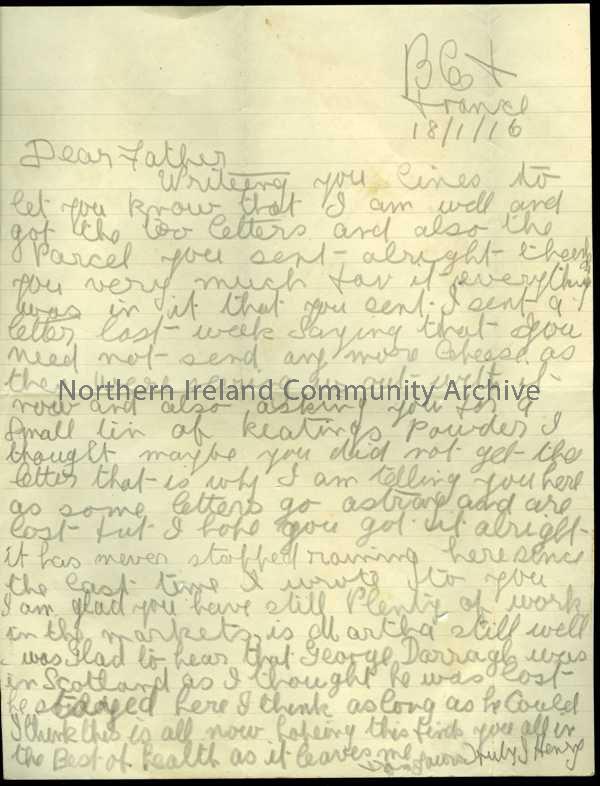 B Coy
France
18/1/16
Dear Father
Writeing you lines to
let you know that I am well and
got the too letters and also the
Parcel you sent alright thank
you very much for it everything
was in it that you sent. I sent a
letter last week saying that you
need not send any more Cheese as
they were
Northern Ireland Community Archive
now and also asking you for a
Small tin of Keatings Powder I
thought maybe you did not get the
letter that is why I am telling you here
as some letters go astray and are
lost but I hope you got it alright
it has never stopped raining here since
the last time I wrote to you
I am glad you have still Plenty of work
in the markets is Martha still well
I was Glad to hear that George Darragh was
in Scotland as I thought he was lost
he stayed here I think as long as he Could
I think this is all now hopeing this finds you all in
the Best of health as it leaves me yours Truly J Henry